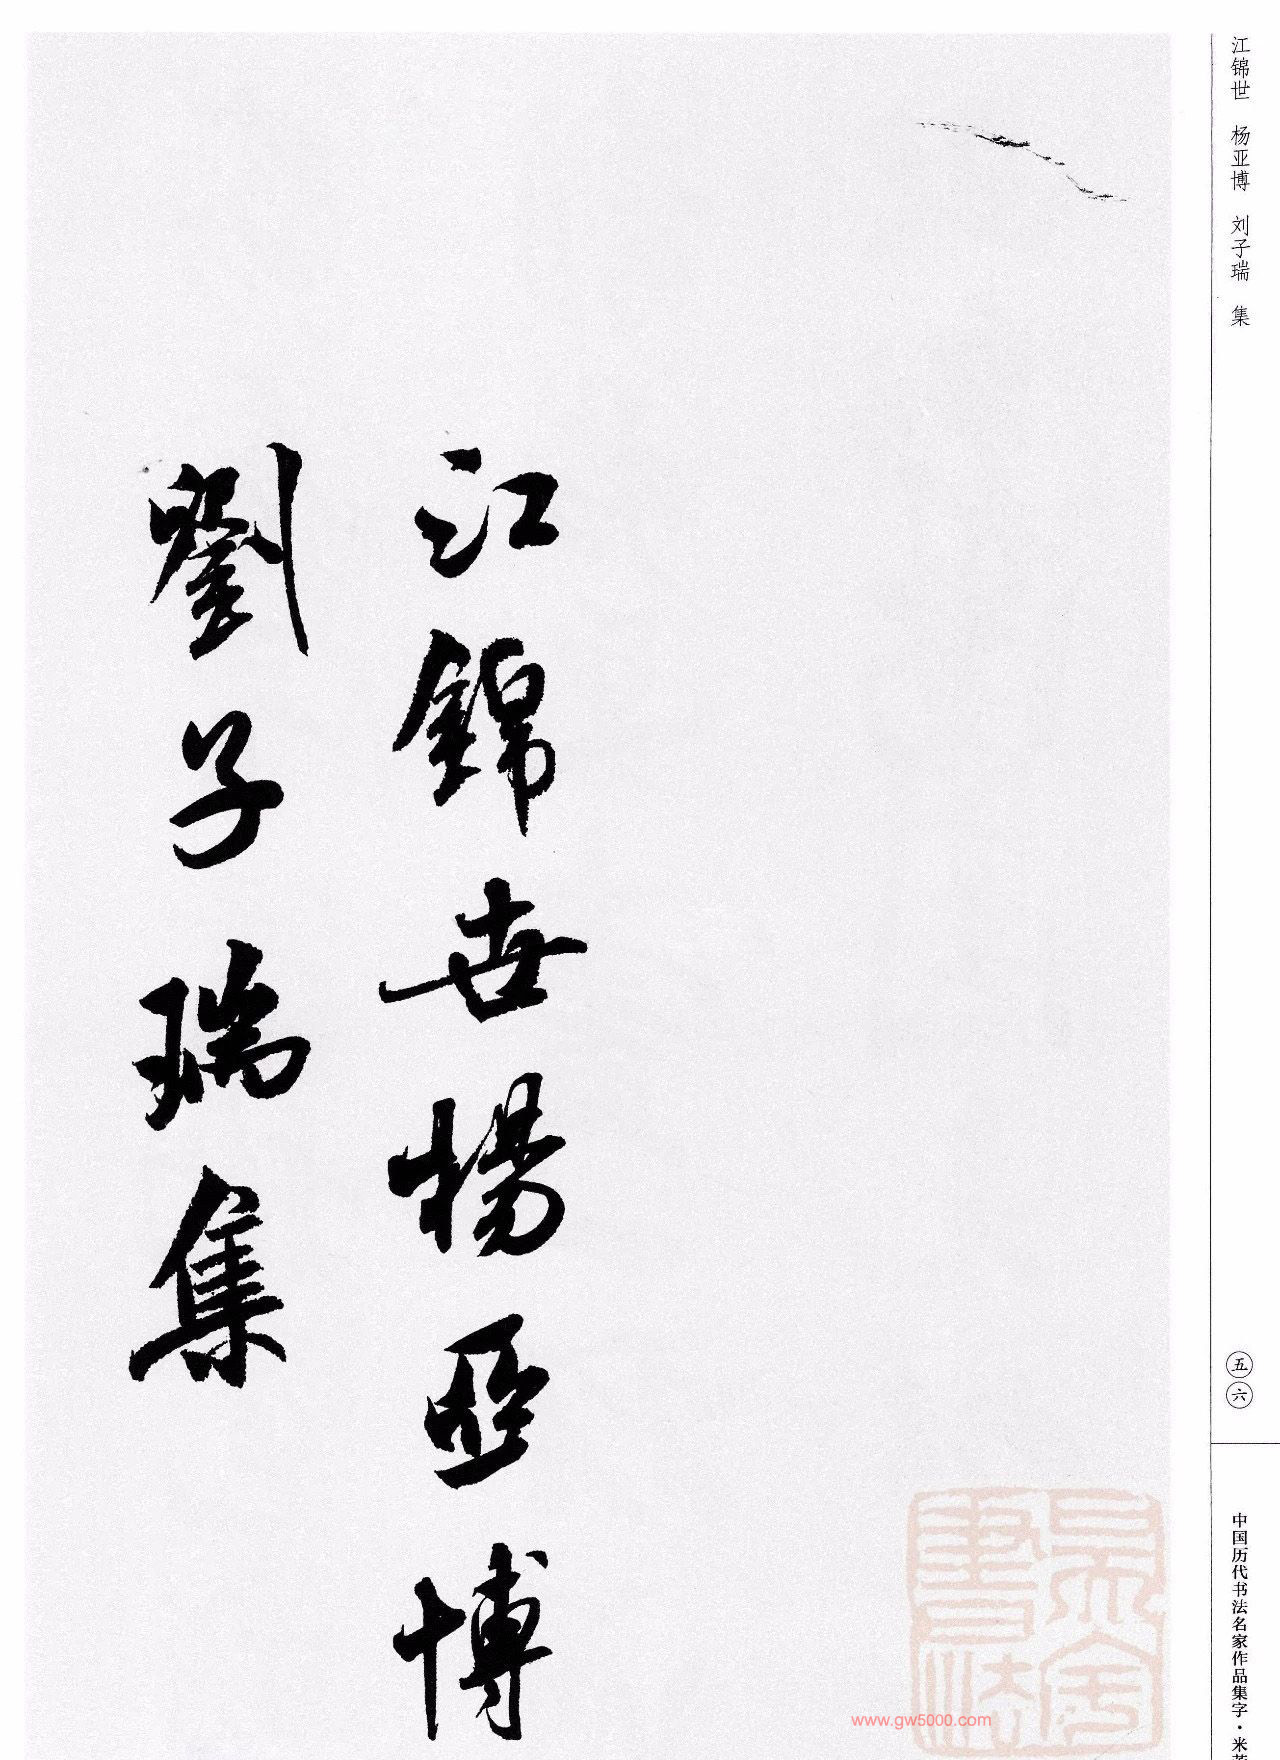 江锦世 杨亚博 刘子瑞 集
五六
中国历代书法名家作品集字·米
江錦世楊亞博
劉子瑞集
www.gw5000.com